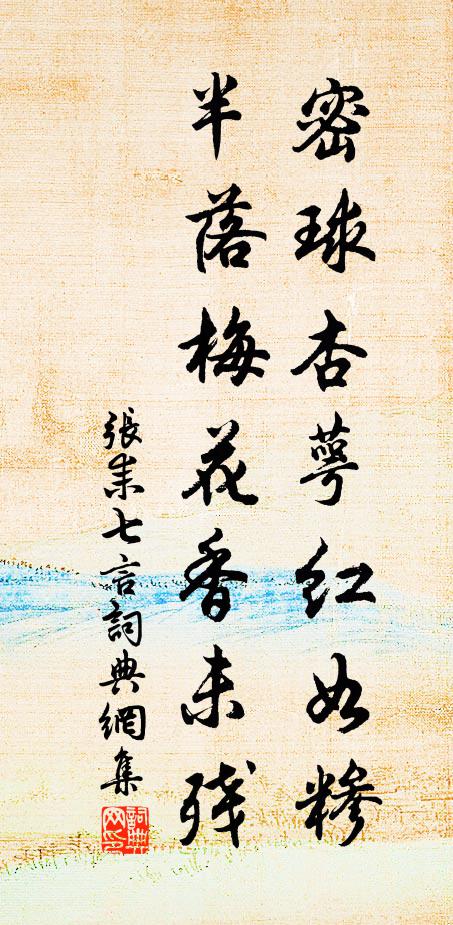 密球杏萼红如糁
半落梅花香未残
張耒七言詞典網集
詞典网印